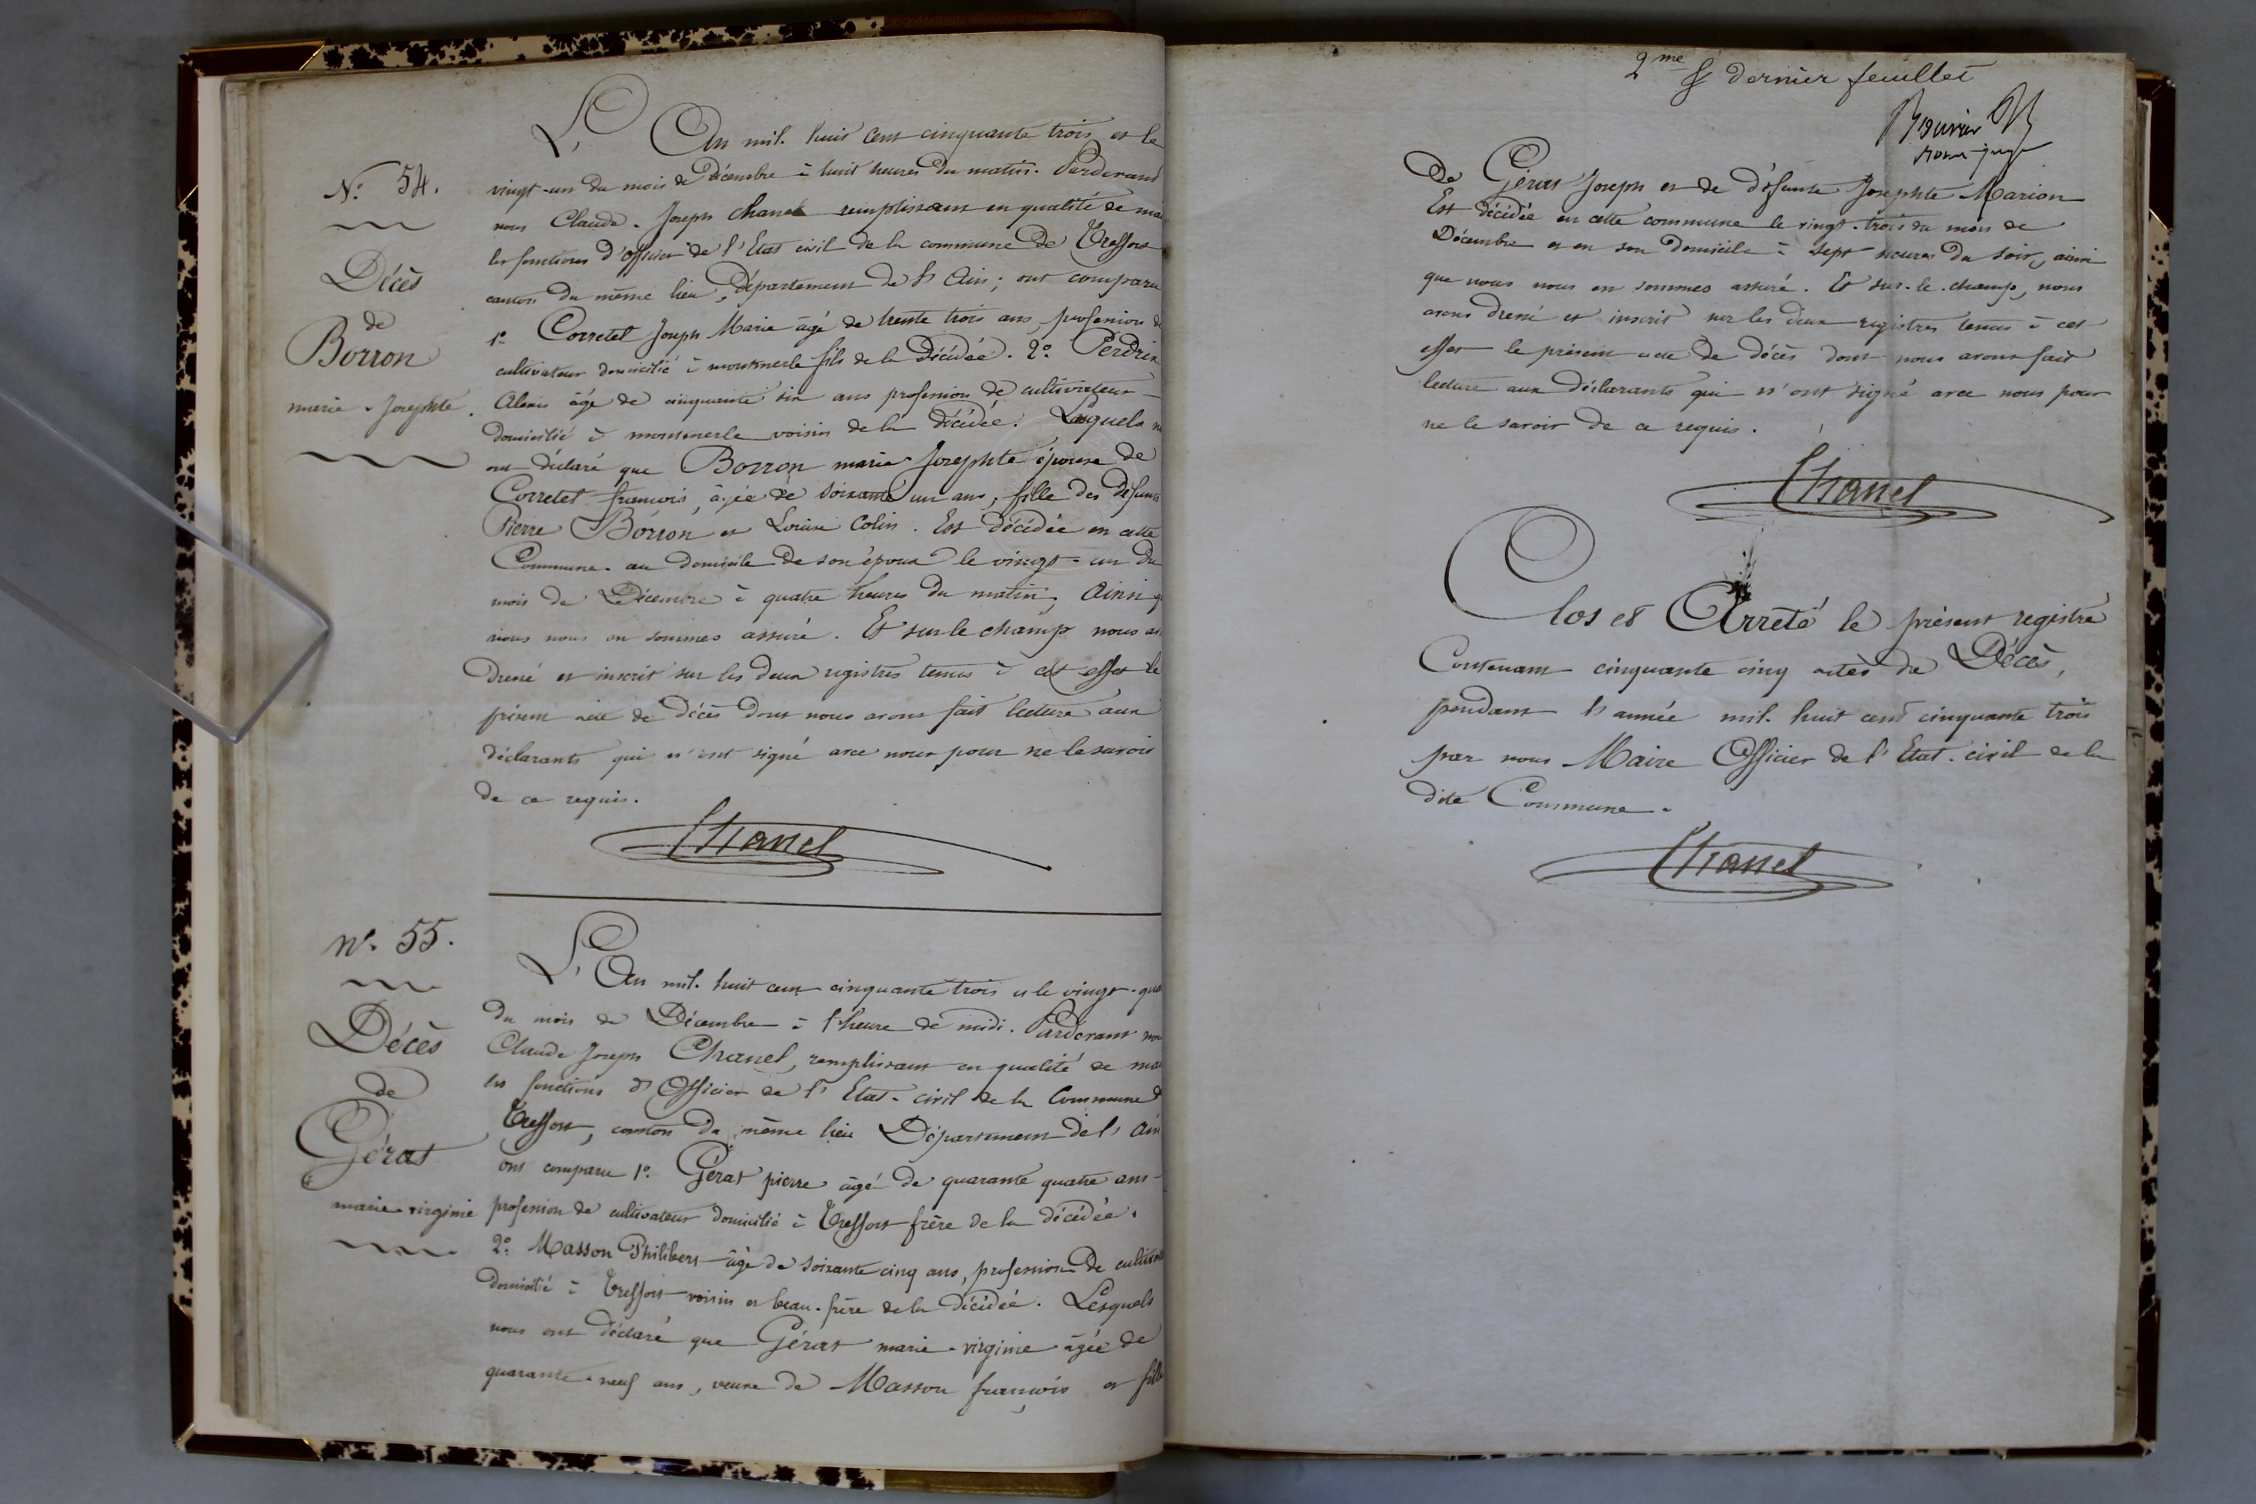 N.º 54.
Décès
de
Borron
marie-Josephte.
L'An mil-huit cent cinquante trois et le
vingt-un du mois de Décembre à huit heures du matin. Pardevant
nous Claude-Joseph Chanel remplissant en qualité de mai
les fonctions d'officier de l'Etat civil de la commune de Treffort
canton du même lieu, département de l'Ain; ont comparu
1º Corretel Joseph Marie âgé de trente trois ans, profession de
cultivateur domicilié à montmerle fils de la décédée. 2º. Perdrix
Alexis âgé de cinquante six ans profession de cultivateur
domicilié à montmerle voisin de la décédée. Lesquels n
ont déclaré que Borron marie-Josephte épouse de
Corretel françois, âgée de soixante un ans, fille des défunts
Pierre Borron et Louise Colin. Est décédée en cette
Commune au domicile de son époux le vingt-un du
mois de Décembre à quatre heures du matin, Ainsi q
nous nous en sommes assuré. Et sur le champ nous av
dressé et inscrit sur les deux registres tenus à cet effet le
présent acte de décès dont nous avons fait lecture aux
déclarants qui n'ont signé avec nous pour ne le savoir
de ce requis.
Chanel
nº. 55.
Décès
de
Gérat
marie-virginie
L'An mil-huit cent cinquante trois et le vingt-qua
du mois de Décembre à l'heure de midi. Pardevant nou
Claude Joseph Chanel, remplissant en qualité de mai
les fonctions d'Officier de l'Etat-civil de la Commune d
Treffort, canton du même lieu Département de l'Ain
ont comparu 1º. Gérat pierre âgé de quarante quatre ans
profession de cultivateur domicilié à Treffort frère de la décédée.
2º. Masson Philibert âgé de soixante cinq ans, profession de cultivat
domicilié à Treffort voisin et beau-frère de la décédée. Lesquels
nous ont déclaré que Gérat marie-virginie âgée de
quarante-neuf ans, veuve de Masson françois et fille
2me & dernier feuillet
Bouvier
De Gérat Joseph et de défunte Josephte Marion
Est décédée en cette commune le vingt-trois du mois de
Décembre et en son domicile à sept heures du soir, ainsi
que nous nous en sommes assuré. Et sur-le-champ, nous
avons dressé et inscrit sur les deux registres tenus à cet
effet le présent acte de décès dont nous avons fait
lecture aux déclarants qui n'ont signé avec nous pour
ne le savoir de ce requis.
Chanel
Clos et Arreté le présent registre
Contenant cinquante cinq actes de Décès,
pendant l'année mil-huit cent cinquante trois
par nous Maire Officier de l'Etat-civil de la
dite Commune.
Chanel